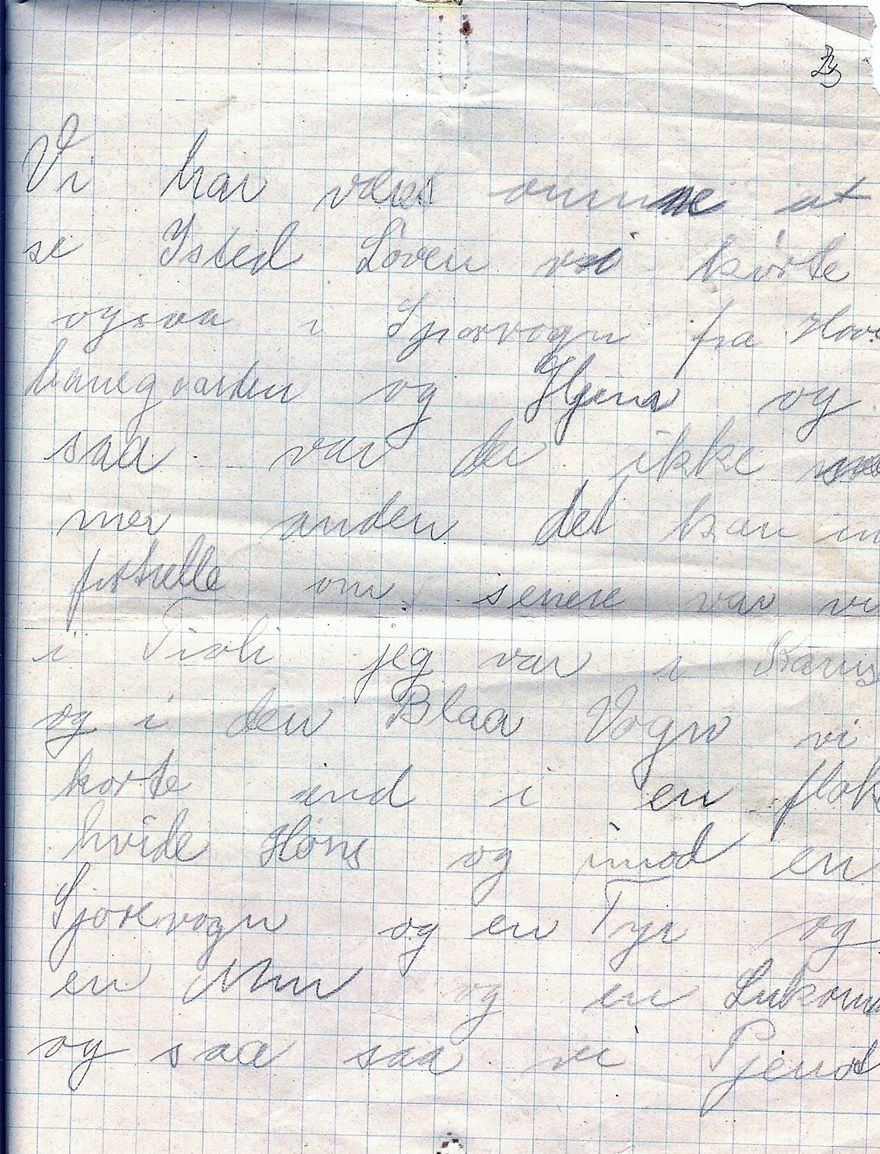 Vi har været omme at
se Isted Løven vi kørte
ogsaa i Sporvogn fra Hov
banegaarden og Hjem og
saa var der ikke
mer anden det kan
fortælle om senere var vi
i Tivoli jeg var i Karus
og i den Blaa Vogn vi
kørte ind i en flok
hvide Høns og imod en
Sporvogn og en Tyr og
en Mur og en Lukom
og saa saa vi Pjerrot